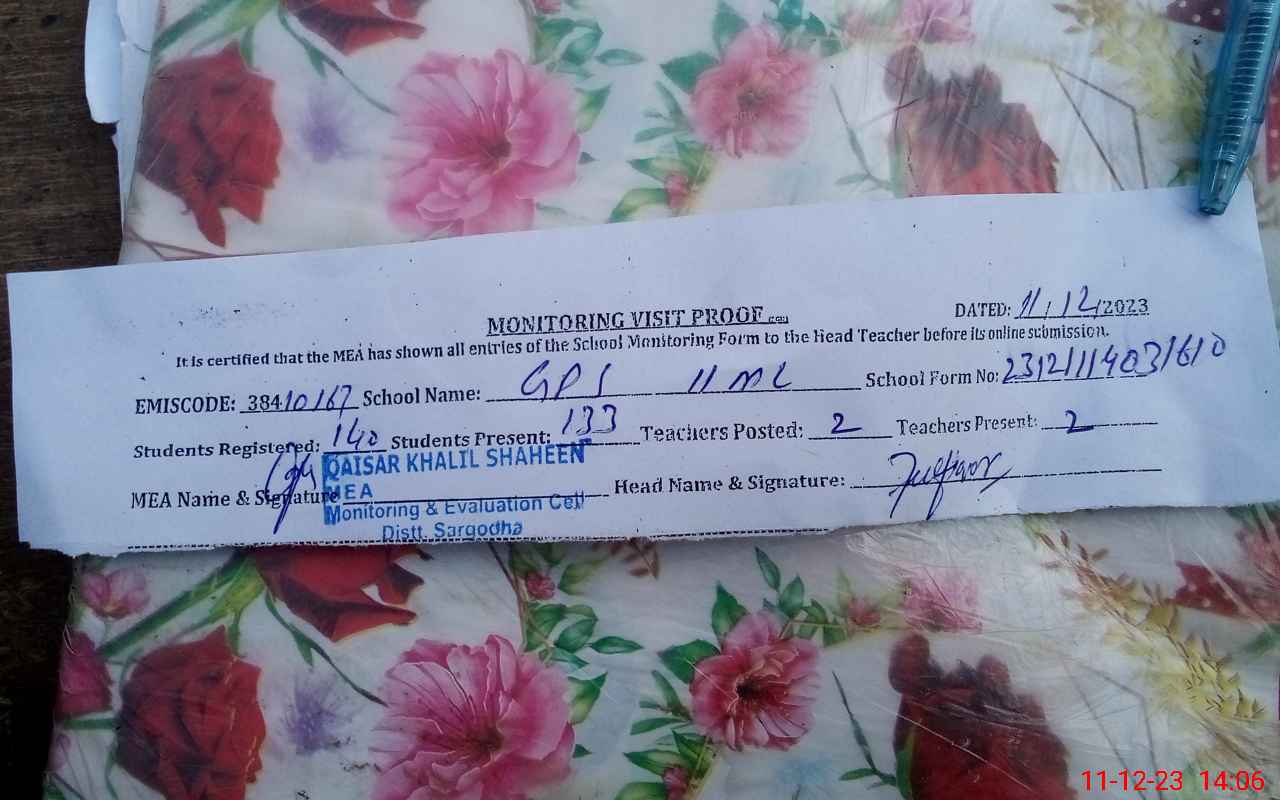 MONITORING VISIT PROOF
DATED: 11/12/2023
It is certified that the MEA has shown all entries of the School Monitoring Form to the Head Teacher before its online submission.
EMISCODE: 38410167 School Name: GPS 11 ML School Form No:
Students Registered: 140 Students Present: 133 Teachers Posted: 2 Teachers Present: 2
MEA Name & Signature Head Name & Signature:
QAISAR KHALIL SHAHEEN
MEA
Monitoring & Evaluation Cell
Distt. Sargodha
11-12-23 14:06